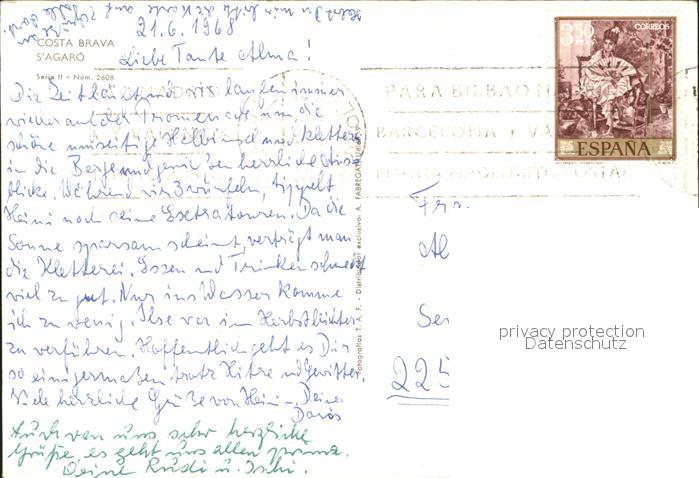 21.6.1968
COSTA BRAVA
S'AGARÓ
Serie II - Núm. 2608
Liebe Tante Alma!
Die Zeit läuft und wir laufen immer
wieder auf der Promenade um die
schöne einseitige Halbinsel und klettern
in die Berge und genießen herrliche Aus-
blicke. Während wir würfeln, tippelt
Heini noch seine Extratouren. Da die
Sonne sparsam scheint, verträgt man
die Kletterei. Essen und Trinken schmeckt
viel zu gut. Nur ins Wasser komme
ich zu wenig. Ilse war im
zu verführen. Hoffentlich geht es Dir
so einigermaßen trotz Hitze und Gewitter.
Viele herzliche Grüße von Heini u. Deiner
Auch von uns sehr herzliche
Grüße, es geht uns allen prima.
Deine Rudi u.
Fotografías T. A. F. - Distribuidor exclusivo: A. FABREGAT
PARA BILBAO
BARCELONA Y VA
3,50 PTAS CORREOS
ESPAÑA
Fra.
Al
Se
225
privacy protection
Datenschutz